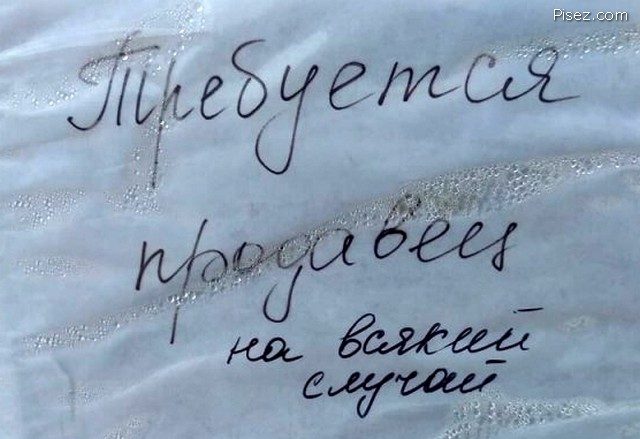 Pisez.com
Требуется
продавец
на всякий
случай